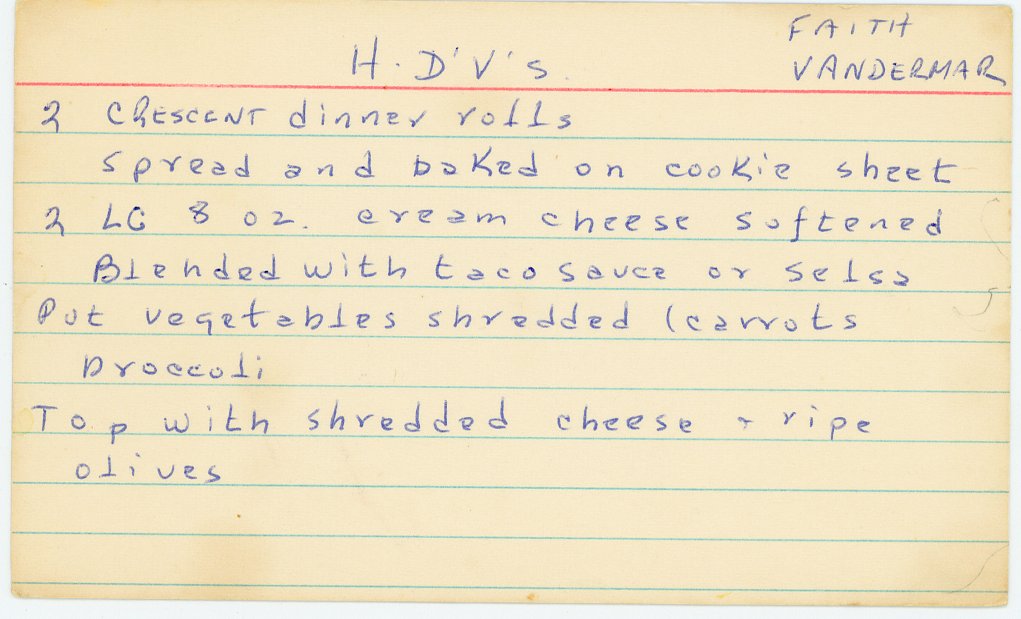 FAITH
H. D'V'S.
VANDERMAR
2 CRESCENT dinner rolls
spread and baked on cookie sheet
2 LG 8 oz. cream cheese softened
Blended with taco sauce or selsa
Put vegetables shredded (carrots
broccoli
Top with shredded cheese + ripe
olives